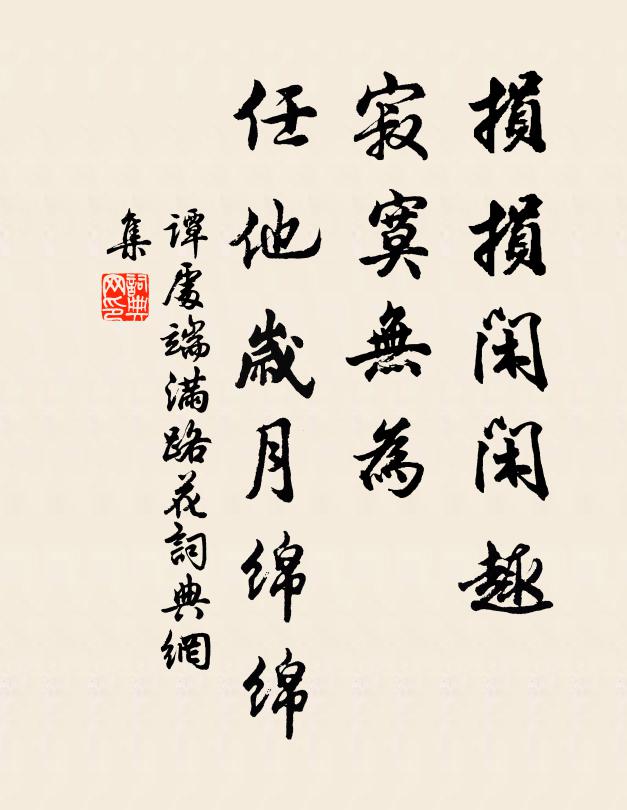 損損閑閑趣
寂寞無為
任他歲月綿綿
譚處端滿路花詞典網
集
詞典
网印